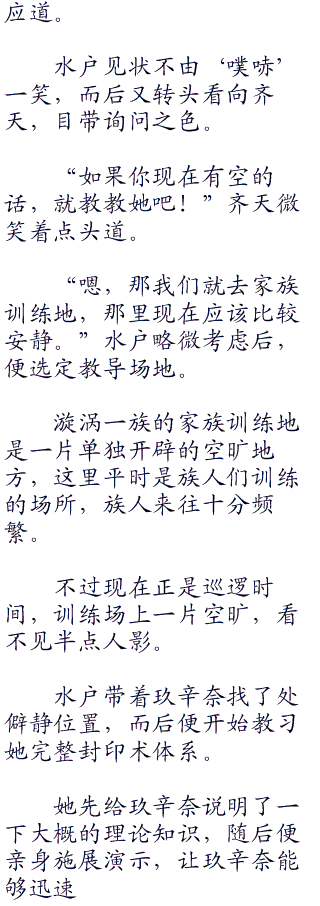 应道。
水户见状不由‘噗哧’
一笑，而后又转头看向齐
天，目带询问之色。
“如果你现在有空的
话，就教教她吧！”齐天微
笑着点头道。
“嗯，那我们就去家族
训练地，那里现在应该比较
安静。”水户略微考虑后，
便选定教导场地。
漩涡一族的家族训练地
是一片单独开辟的空旷地
方，这里平时是族人们训练
的场所，族人来往十分频
繁。
不过现在正是巡逻时
间，训练场上一片空旷，看
不见半点人影。
水户带着玖辛奈找了处
僻静位置，而后便开始教习
她完整封印术体系。
她先给玖辛奈说明了一
下大概的理论知识，随后便
亲身施展演示，让玖辛奈能
够迅速